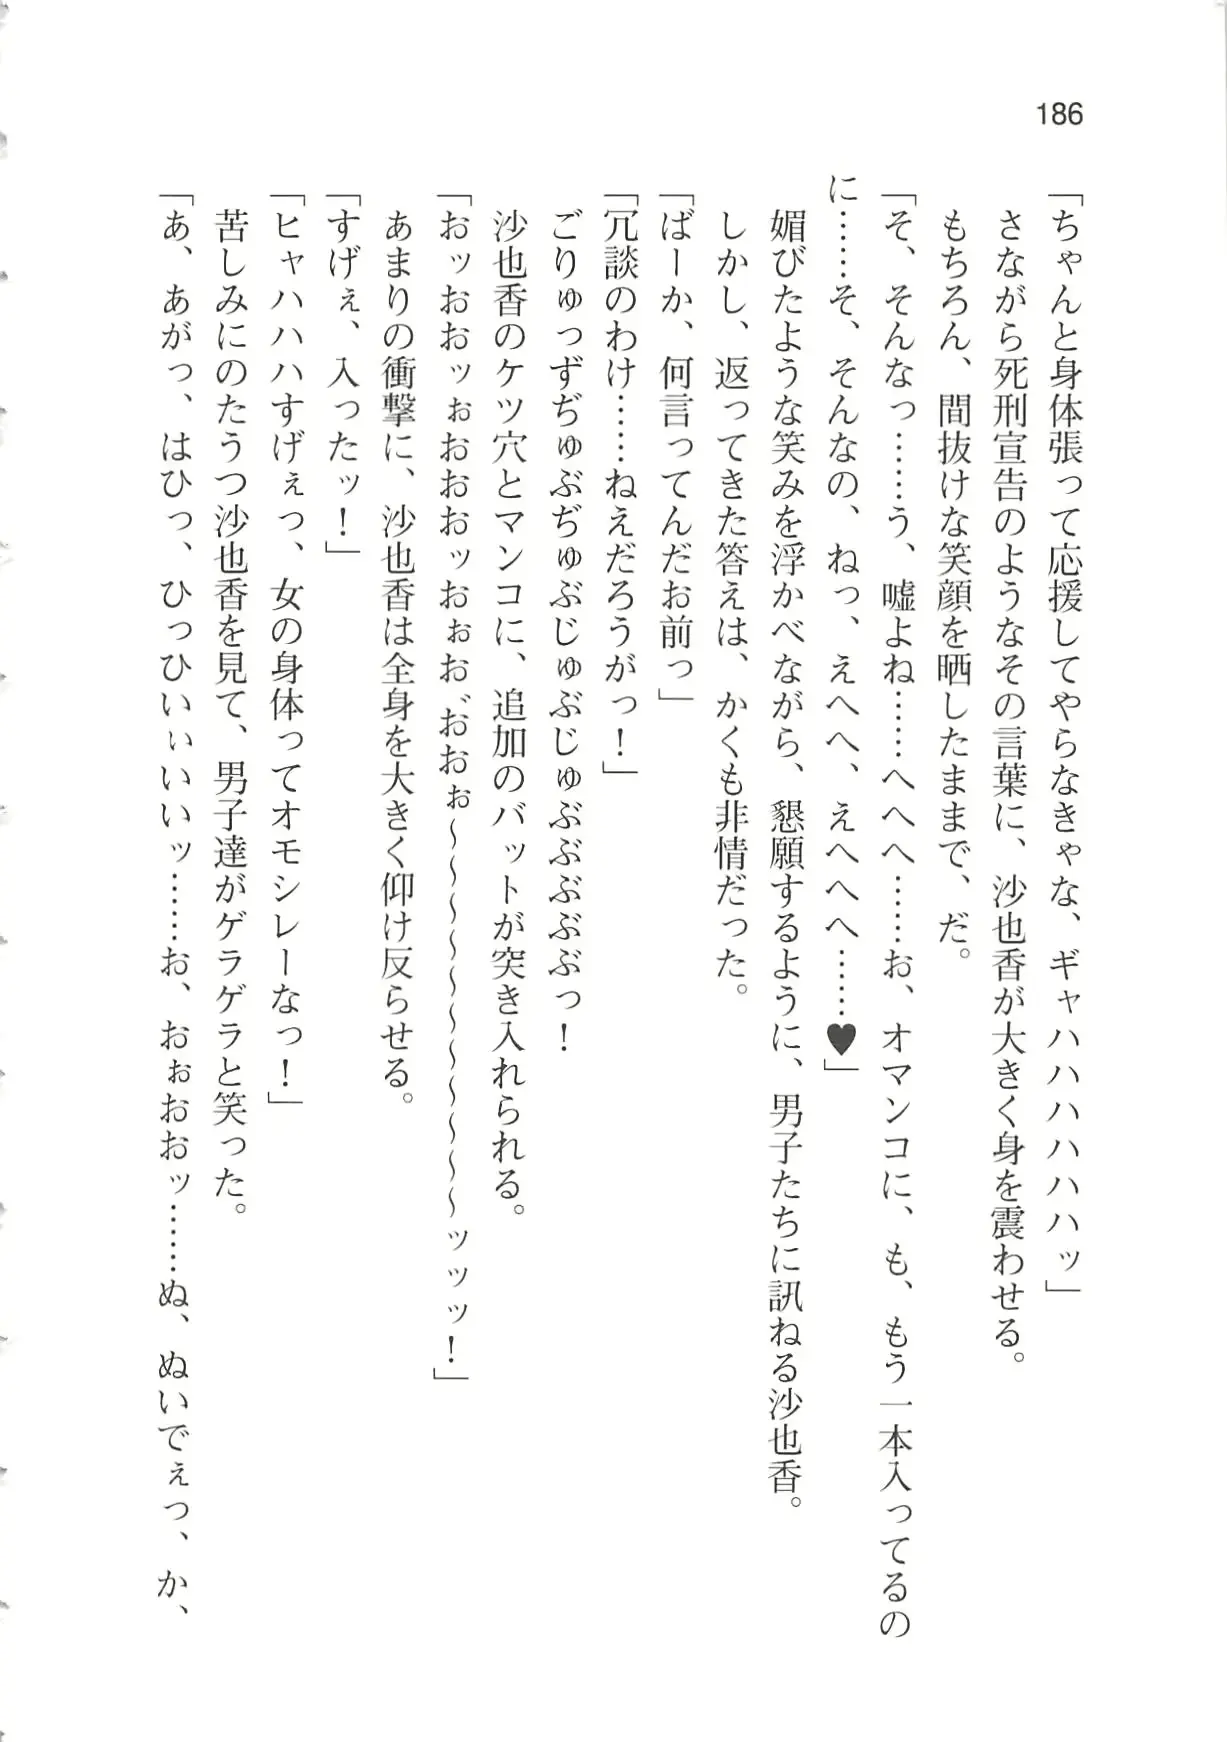 186
「ちゃんと身体張って応援してやらなきゃな、ギャハハハハハハッ」
さながら死刑宣告のようなその言葉に、沙也香が大きく身を震わせる。
もちろん、間抜けな笑顔を晒したままで、だ。
「そ、そんなっ……う、嘘よね……へへへ……お、オマンコに、も、もう一本入ってるの
に……そ、そんなの、ねっ、えへへ、えへへへ……♥」
媚びたような笑みを浮かべながら、懇願するように、男子たちに訊ねる沙也香。
しかし、返ってきた答えは、かくも非情だった。
「ばーか、何言ってんだお前っ」
「冗談のわけ……ねえだろうがっ！」
ごりゅっずぢゅぶぢゅぶじゅぶじゅぶぶぶぶぶっ！
沙也香のケツ穴とマンコに、追加のバットが突き入れられる。
「おッおおッぉおおおッおぉお゛おおぉ～～～～～～～～～～～ッッッ！」
あまりの衝撃に、沙也香は全身を大きく仰け反らせる。
「すげぇ、入ったッ！」
「ヒャハハハすげぇっ、女の身体ってオモシレーなっ！」
苦しみにのたうつ沙也香を見て、男子達がゲラゲラと笑った。
「あ、あがっ、はひっ、ひっひいぃいいッ……お、おぉおおッ……ぬ、ぬいでぇっ、か、